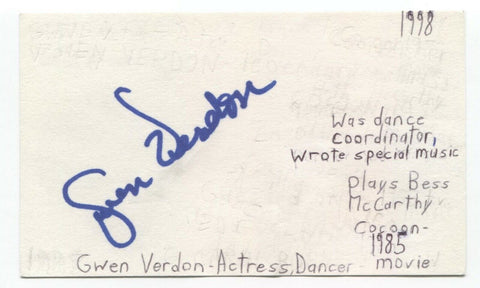 1998
Gwen Verdon
Was dance
coordinator,
wrote special music
plays Bess
McCarthy
Cocoon-
1985
Gwen Verdon-Actress, Dancer movie